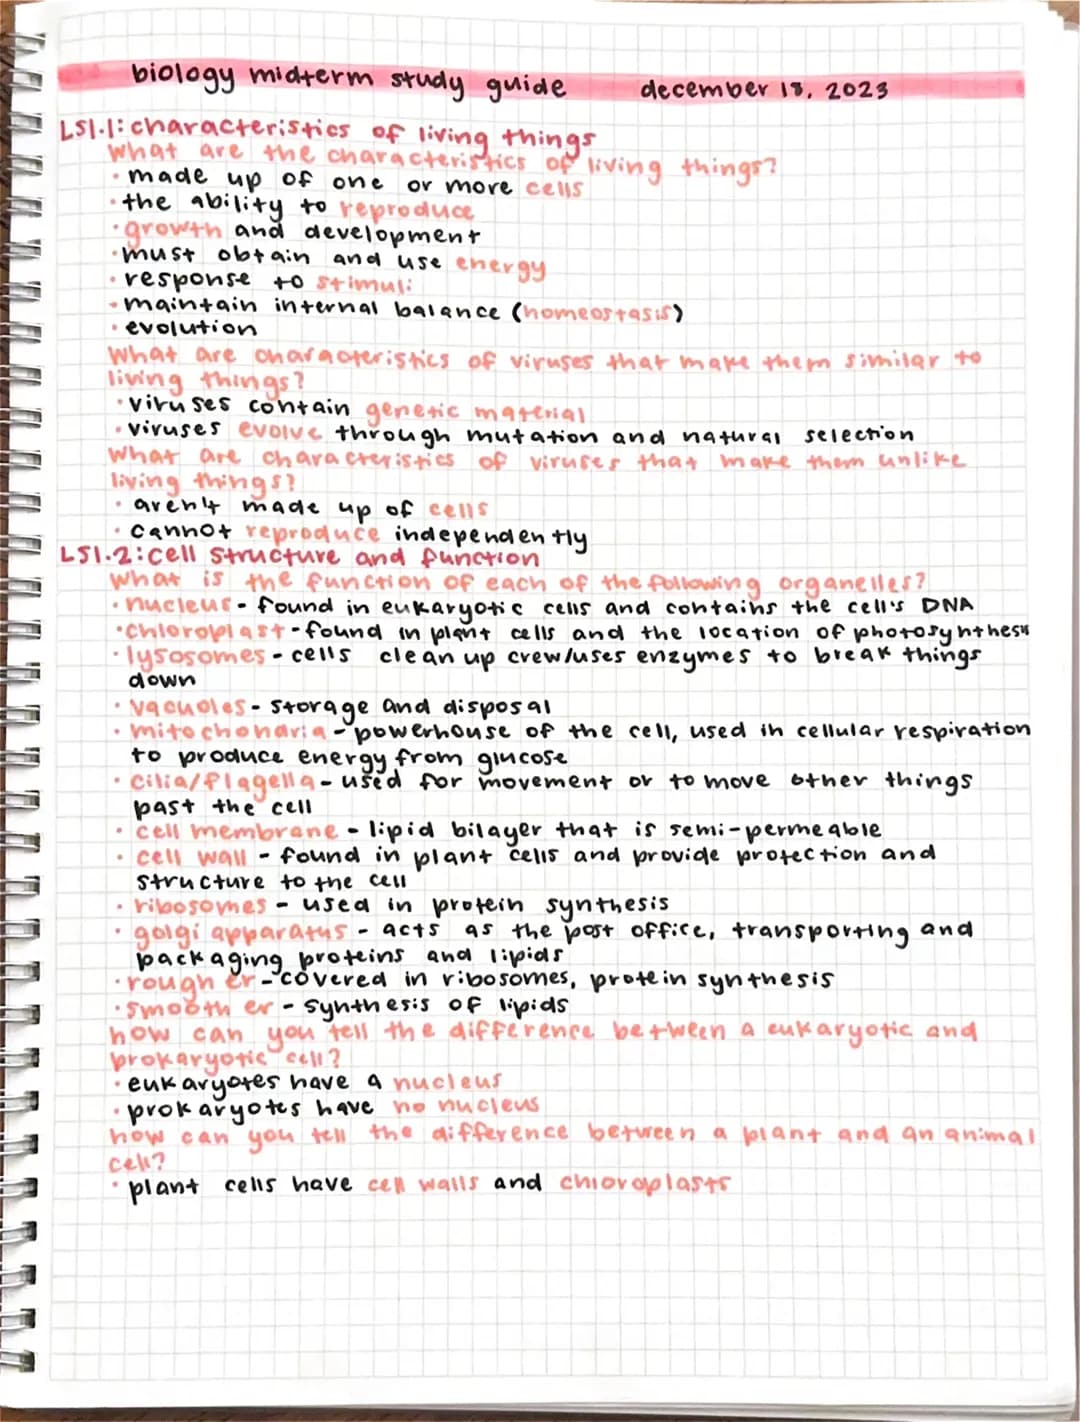 biology midterm study guide december 18, 2023
LS1.1: characteristics of living things
What are the characteristics of living things?
· made up of one or more cells
· the ability to reproduce
· growth and development
· must obtain and use energy
· response to stimuli
· maintain internal balance (homeostasis)
· evolution
What are characteristics of viruses that make them similar to
living things?
· viruses contain genetic material
· viruses evolve through mutation and natural selection
What are characteristics of viruses that make them unlike
living things?
· aren't made up of cells
· cannot reproduce independently
LS1.2: cell structure and function
What is the function of each of the following organelles?
· nucleus - found in eukaryotic cells and contains the cell's DNA
· chloroplast - found in plant cells and the location of photosynthesis
· lysosomes - cells clean up crew/uses enzymes to break things
down
· vacuoles - storage and disposal
· mitochondria - powerhouse of the cell, used in cellular respiration
to produce energy from glucose
· cilia/flagella - used for movement or to move other things
past the cell
· cell membrane - lipid bilayer that is semi-permeable
· cell wall - found in plant cells and provide protection and
structure to the cell
· ribosomes - used in protein synthesis
· golgi apparatus - acts as the post office, transporting and
packaging proteins and lipids
· rough er - covered in ribosomes, protein synthesis
· smooth er - synthesis of lipids
how can you tell the difference between a eukaryotic and
prokaryotic cell?
· eukaryotes have a nucleus
· prokaryotes have no nucleus
how can you tell the difference between a plant and an animal
cell?
· plant cells have cell walls and chloroplasts